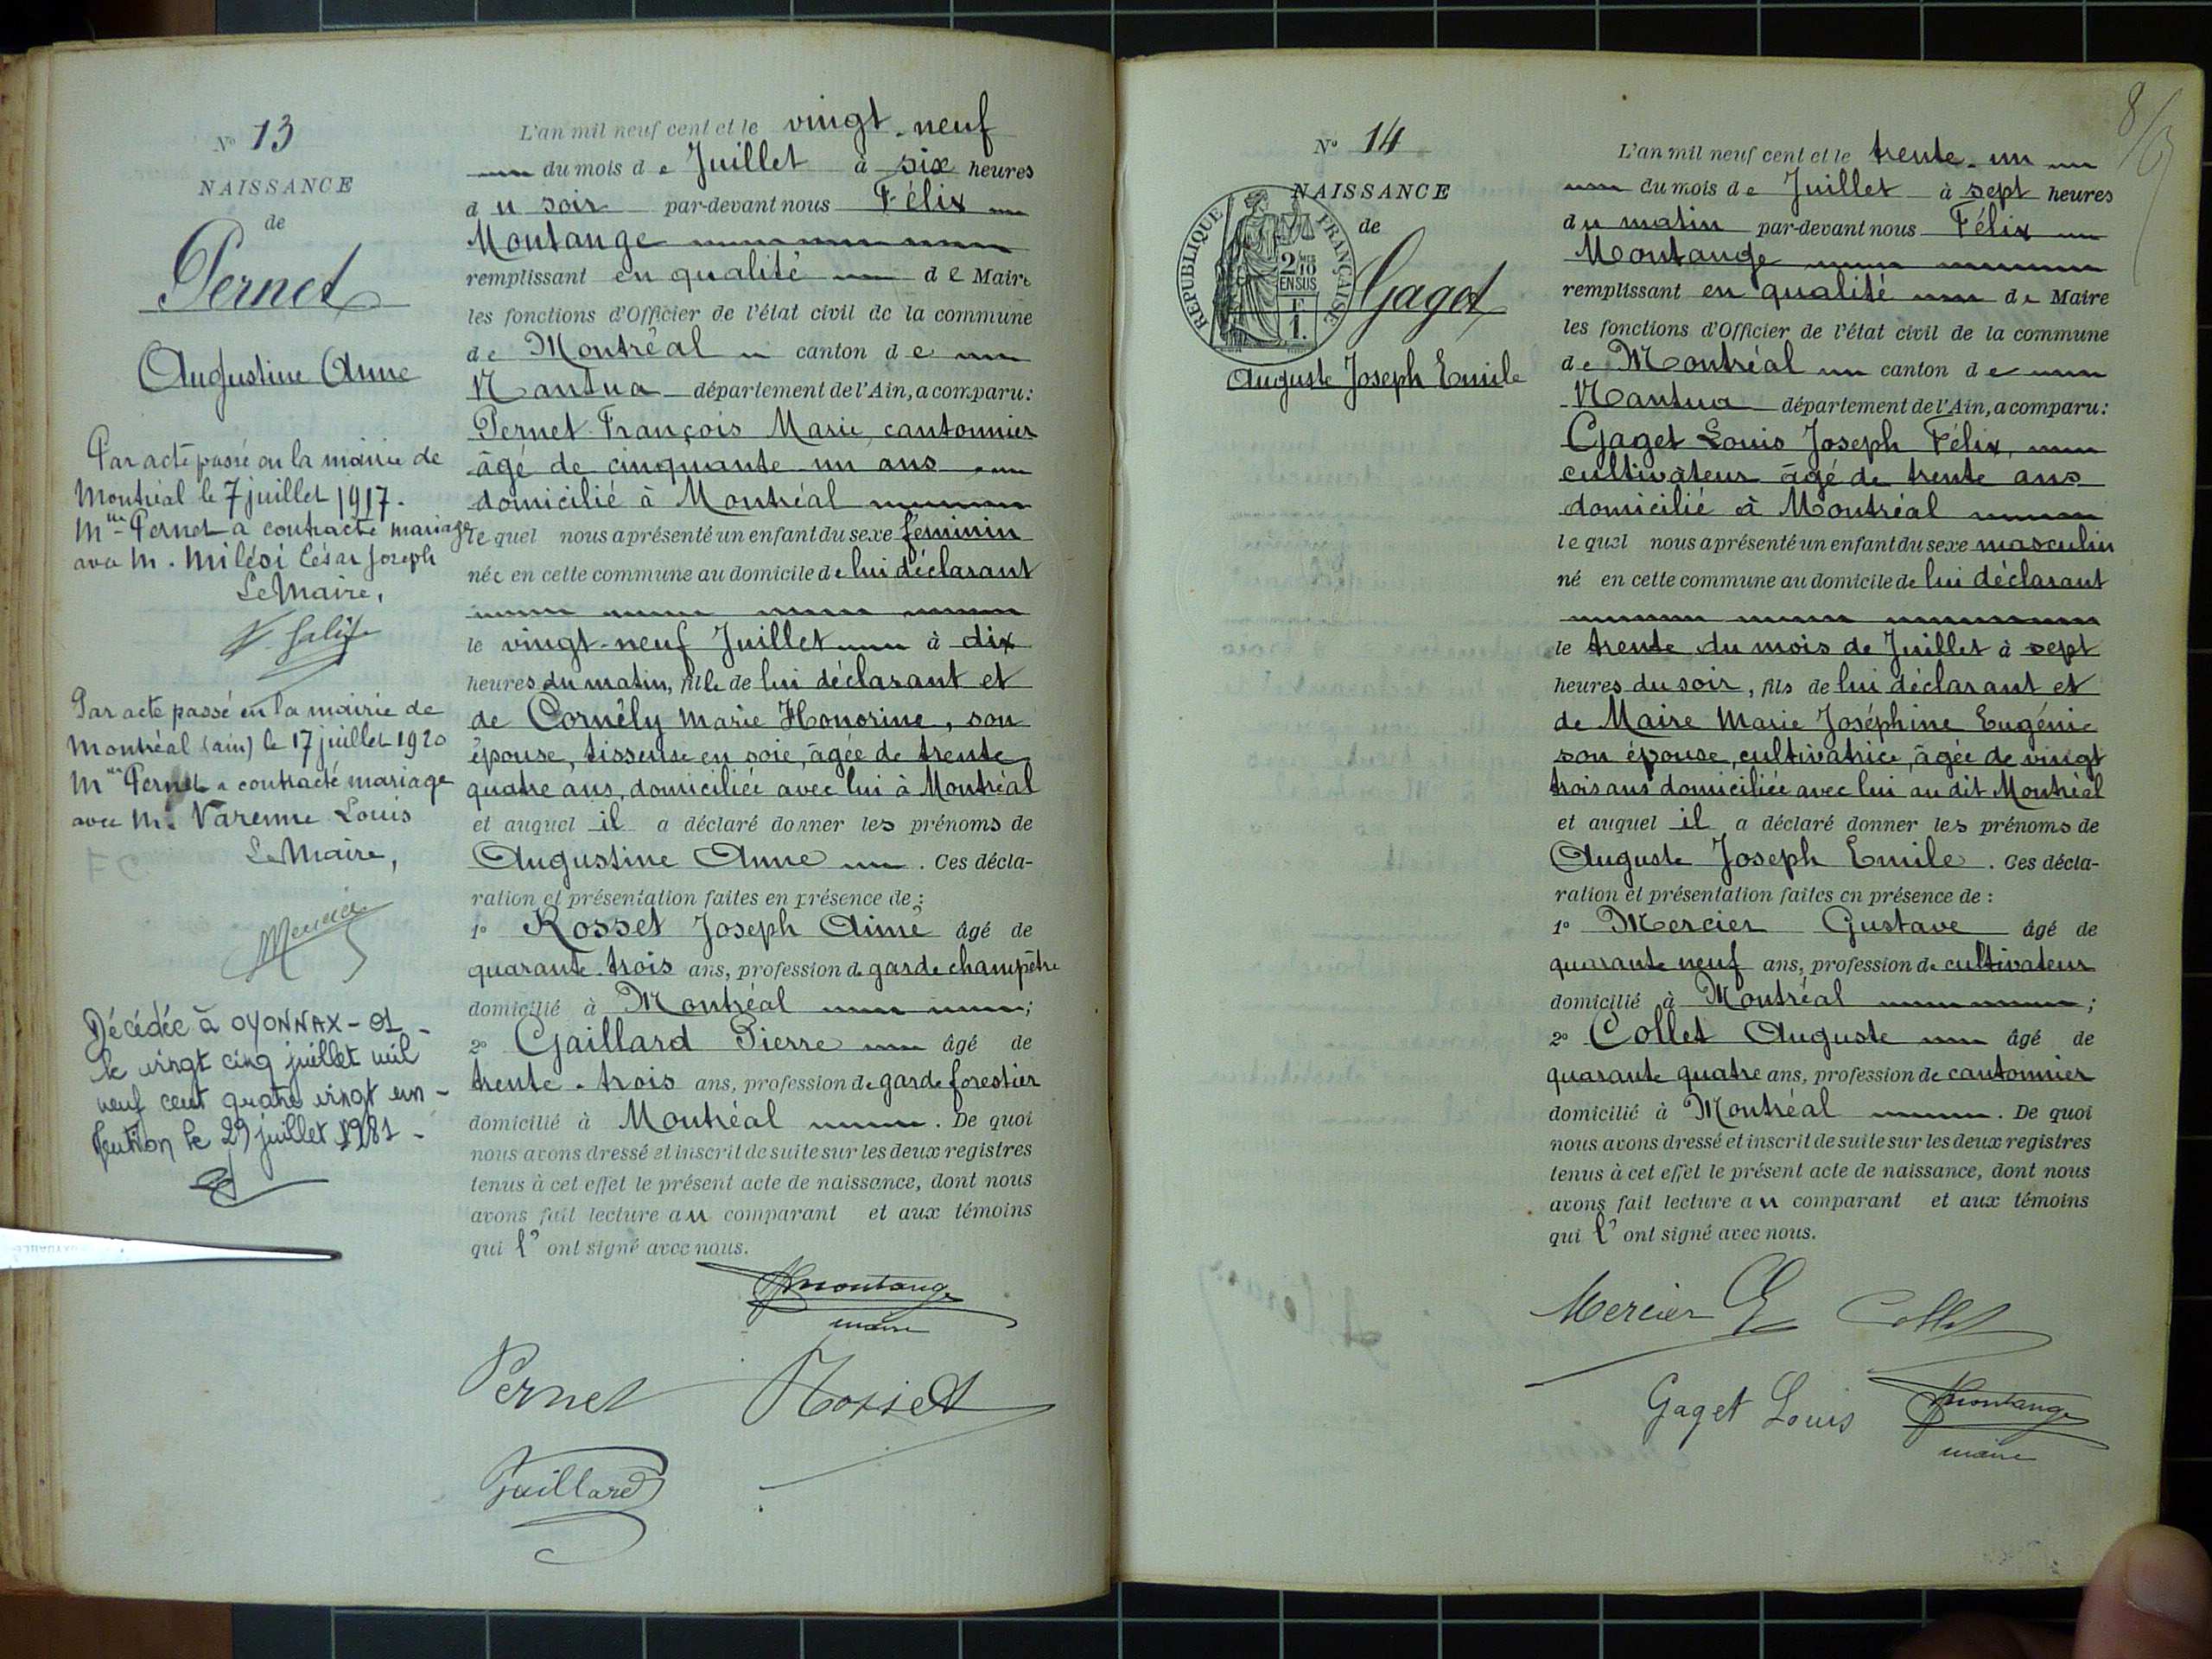 N° 13
NAISSANCE
de
Pernet
Augustine Anne
Par acte passé en la mairie de
Montréal le 7 juillet 1917.
Mlle Pernet a contracté mariage
avec M. Milési César Joseph
Le Maire,
Par acte passé en la mairie de
Montréal (ain) le 17 juillet 1920
Pernet a contracté mariage
avec M. Varenne Louis
Le Maire,
Mercier
Décédée à OYONNAX - 01 -
le vingt cinq juillet mil
neuf cent quatre vingt un -
Mention le 29 juillet 1981 -
L'an mil neuf cent et le vingt-neuf
du mois de Juillet à six heures
du soir par-devant nous Félix
Montange
remplissant en qualité de Maire
les fonctions d'Officier de l'état civil de la commune
de Montréal canton de
Nantua département de l'Ain, a comparu:
Pernet François Marie, cantonnier
âgé de cinquante un ans
domicilié à Montréal
lequel nous a présenté un enfant du sexe féminin
née en cette commune au domicile de lui déclarant
le vingt-neuf Juillet à dix
heures du matin, fille de lui déclarant et
de Cornély Marie Honorine, son
épouse, tisseuse en soie, âgée de trente
quatre ans, domiciliée avec lui à Montréal
et auquel il a déclaré donner les prénoms de
Augustine Anne . Ces décla-
ration et présentation faites en présence de :
1° Rosset Joseph Aimé âgé de
quarante-trois ans, profession de garde champêtre
domicilié à Montréal ;
2° Gaillard Pierre âgé de
trente-trois ans, profession de garde forestier
domicilié à Montréal . De quoi
nous avons dressé et inscrit de suite sur les deux registres
tenus à cet effet le présent acte de naissance, dont nous
avons fait lecture au comparant et aux témoins
qui l' ont signé avec nous.
Fmontange
maire
Pernet Rosset
Gaillard
8/
N° 14
NAISSANCE
de
REPUBLIQUE FRANÇAISE
2/10
EN SUS
1F.
Gaget
Auguste Joseph Emile
L'an mil neuf cent et le trente-un
du mois de Juillet à sept heures
du matin par-devant nous Félix
Montange
remplissant en qualité de Maire
les fonctions d'Officier de l'état civil de la commune
de Montréal canton de
Nantua département de l'Ain, a comparu:
Gaget Louis Joseph Félix,
cultivateur âgé de trente ans
domicilié à Montréal
lequel nous a présenté un enfant du sexe masculin
né en cette commune au domicile de lui déclarant
le trente du mois de Juillet à sept
heures du soir, fils de lui déclarant et
de Maire Marie Joséphine Eugénie
son épouse, cultivatrice, âgée de vingt
trois ans domiciliée avec lui au dit Montréal
et auquel il a déclaré donner les prénoms de
Auguste Joseph Emile . Ces décla-
ration et présentation faites en présence de :
1° Mercier Gustave âgé de
quarante neuf ans, profession de cultivateur
domicilié à Montréal ;
2° Collet Auguste âgé de
quarante quatre ans, profession de cantonnier
domicilié à Montréal . De quoi
nous avons dressé et inscrit de suite sur les deux registres
tenus à cet effet le présent acte de naissance, dont nous
avons fait lecture au comparant et aux témoins
qui l' ont signé avec nous.
Mercier G Collet
Gaget Louis Fmontange
maire